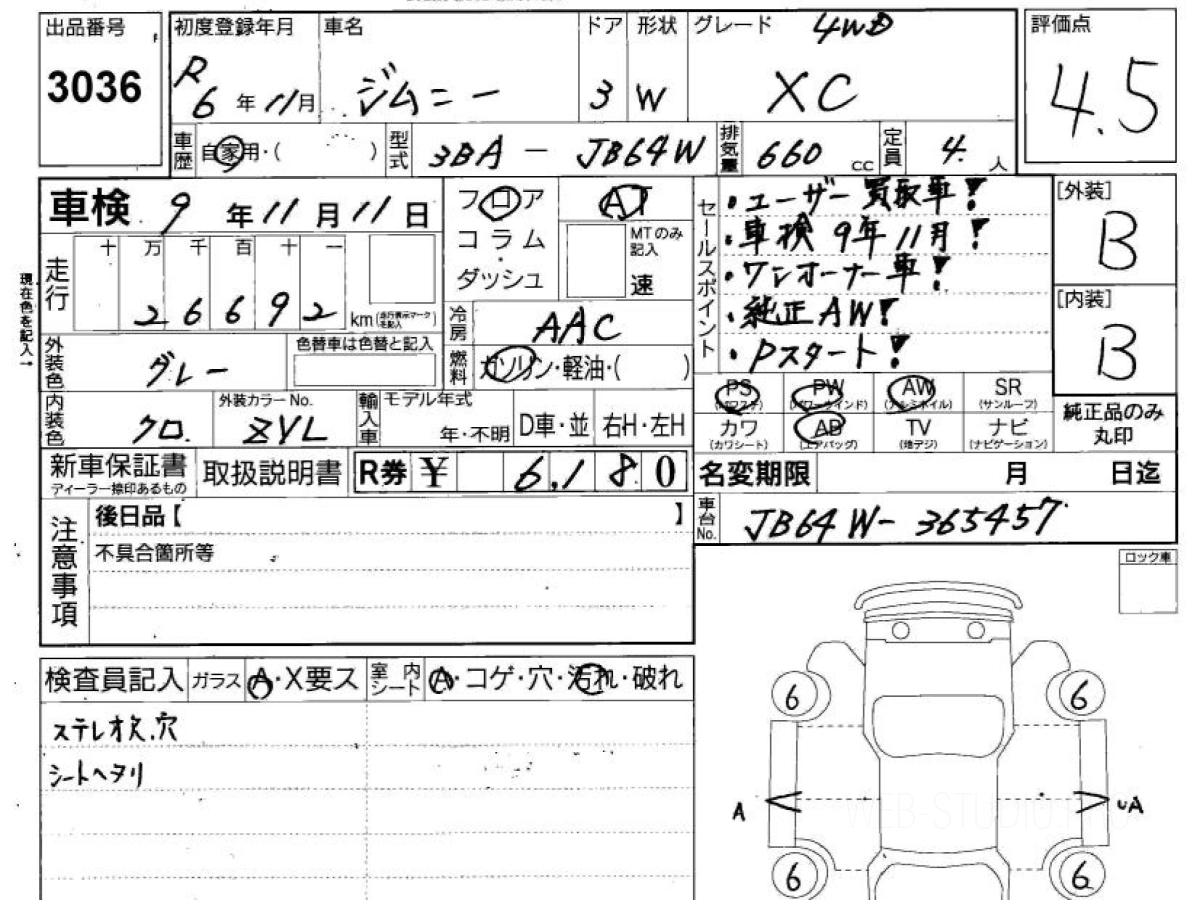 出品番号 初度登録年月 車名 ドア 形状 グレード 4WD 評価点
3036 R6年11月 ジムニー 3 W XC 4.5
車歴 自家用・( ) 型式 3BA - JB64W 排気量 660 cc 定員 4. 人
車検 9年11月11日 フロア AT
コラム MTのみ記入
ダッシュ 速
セールスポイント
・ユーザー買取車!
・車検 9年11月!
・ワンオーナー車!
・純正AW!
・Pスタート!
[外装] B
[内装] B
現在色を記入→
走行 十 万 千 百 十 一
26692 km (走行表示マーク 宅記入)
冷房 AAC
外装色 グレー 色替車は色替と記入
燃料 ガソリン・軽油・( )
PS (パワステ) PW (パワーウインド) AW (アルミホイル) SR (サンルーフ)
カワ (カワシート) AB (エアバッグ) TV (地デジ) ナビ (ナビゲーション)
純正品のみ
丸印
内装色 クロ. 外装カラーNo. ZVL 輸入車 モデル年式 年・不明 D車・並 右H・左H
新車保証書 取扱説明書 R券 ¥ 6,180 名変期限 月 日迄
ディーラー捺印あるもの
注意事項 後日品【 】 車台No. JB64W-365457
不具合箇所等
ロック車
検査員記入 ガラス A・X要ス 室内シート A・コゲ・穴・汚れ・破れ
ステレオ欠.穴
シートヘタリ
6 6
A A
WEB-STUDIO.PRO
6 6